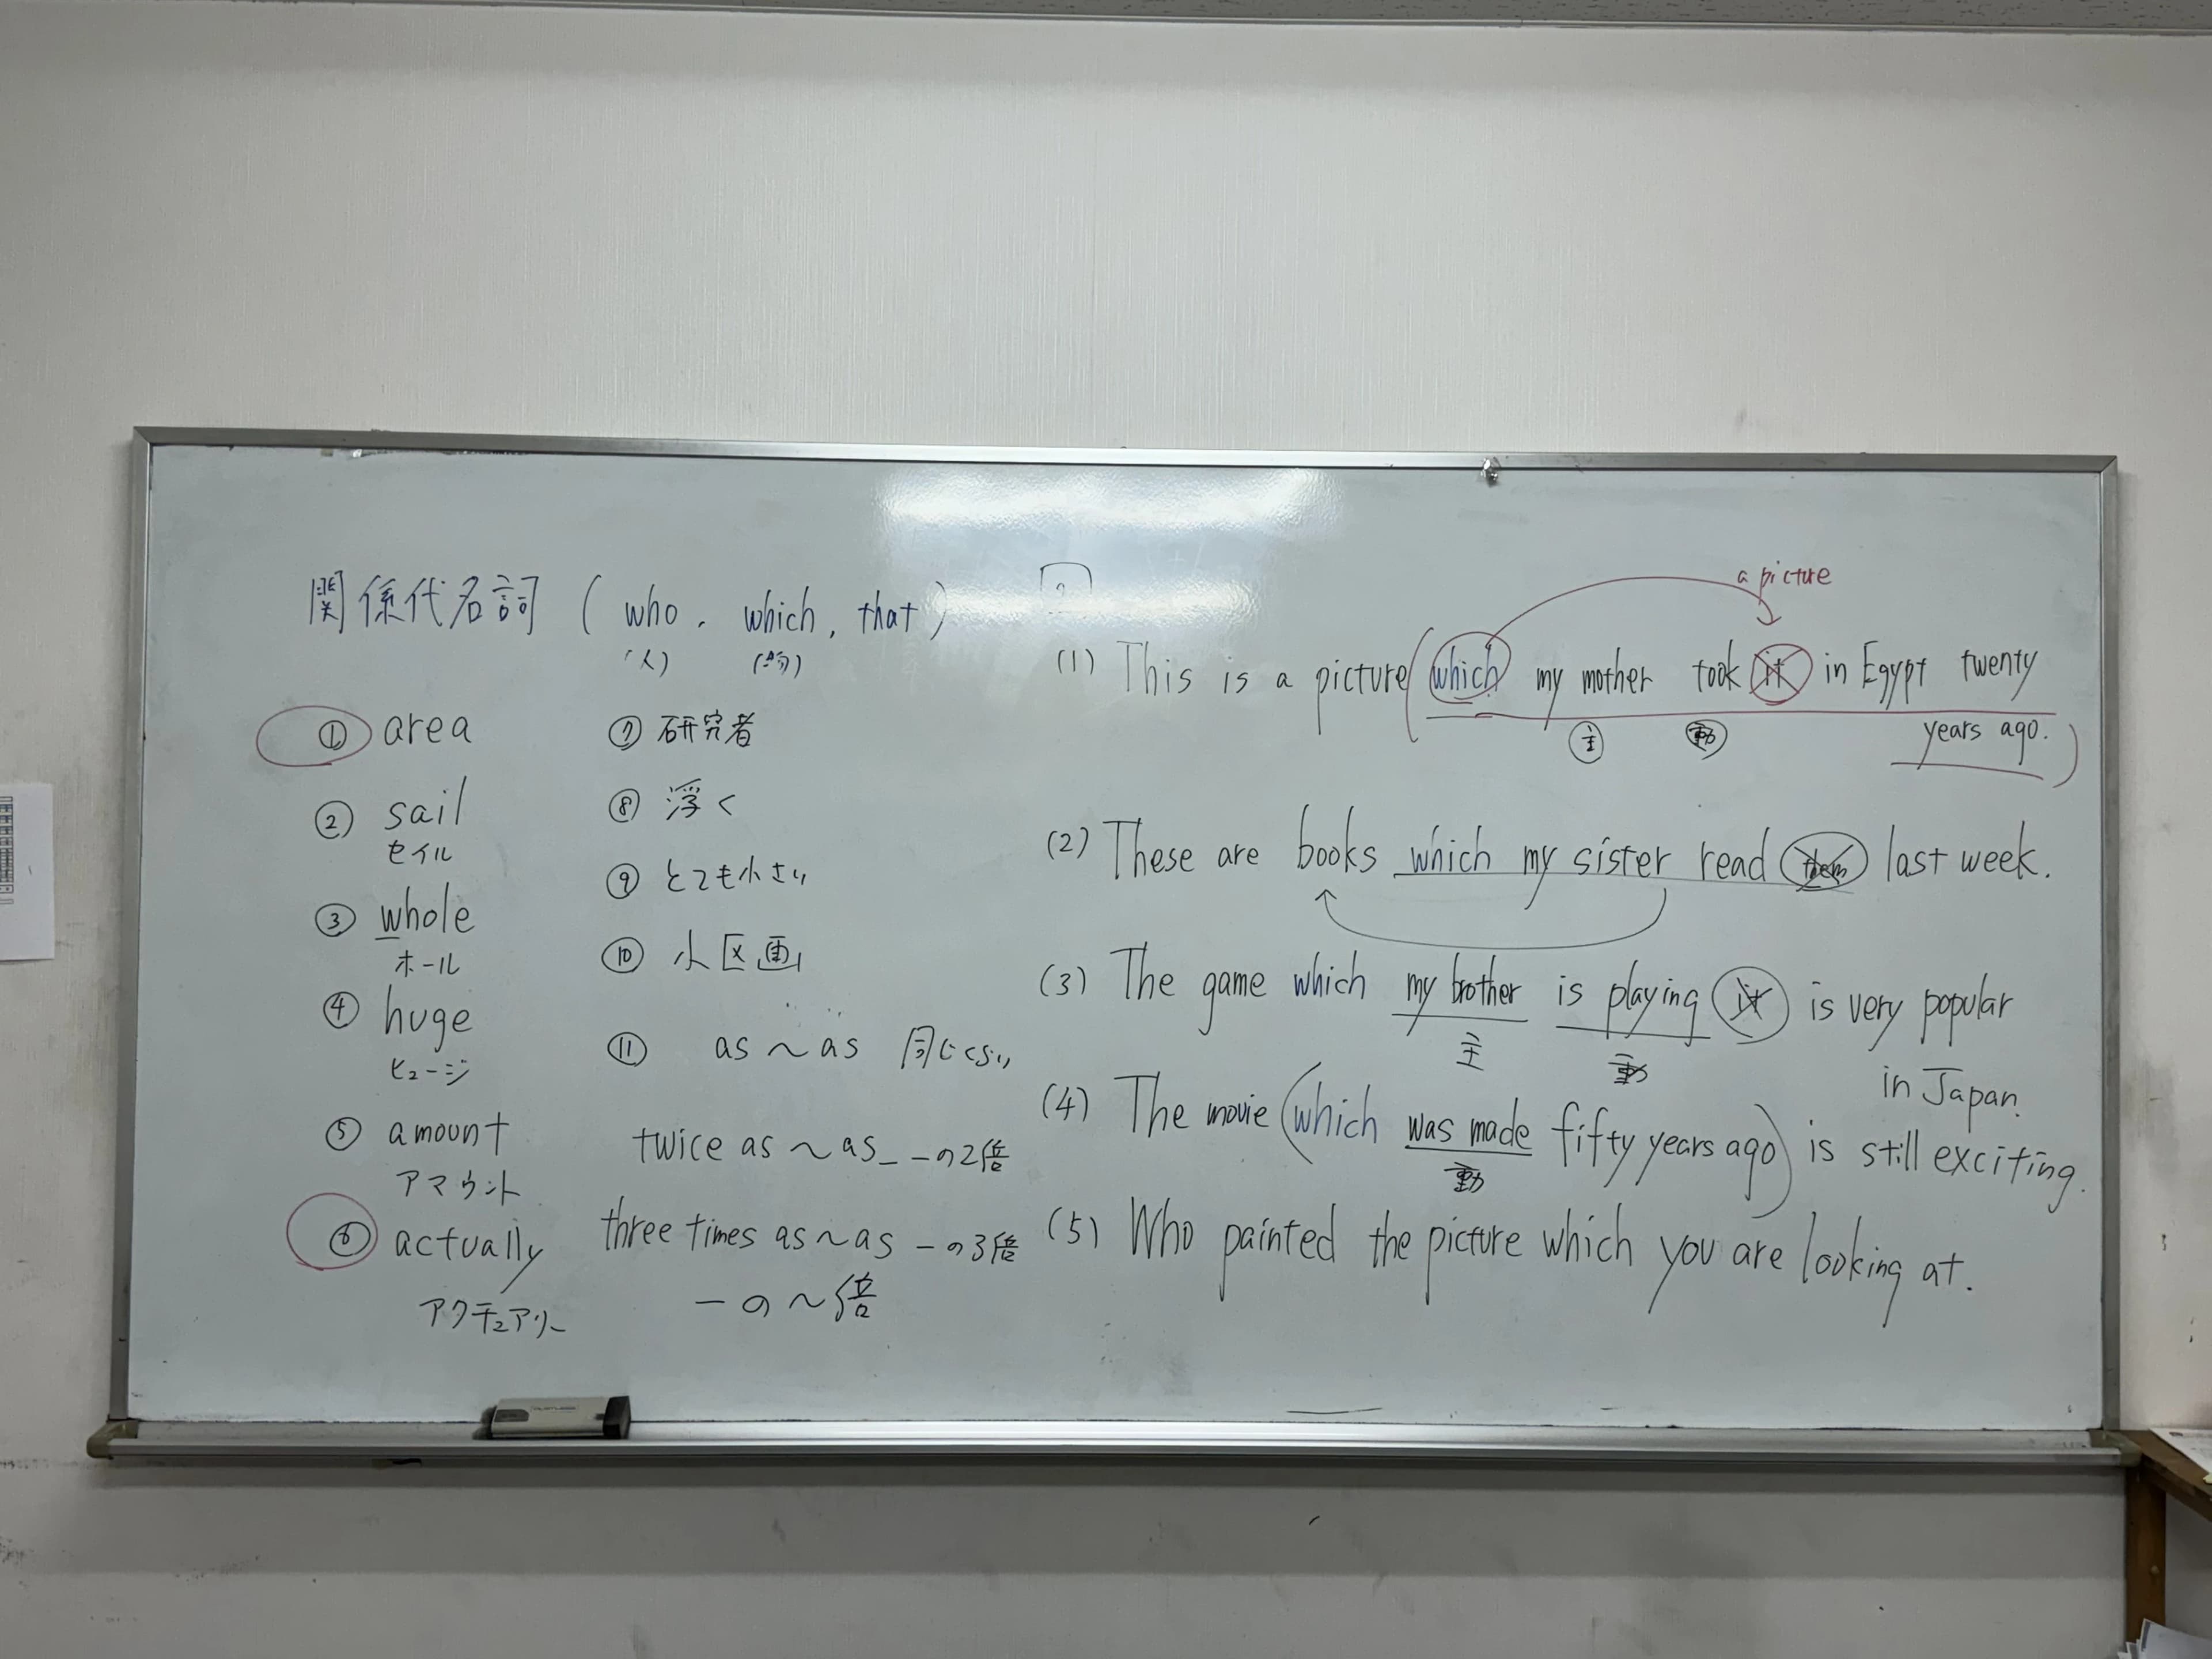 関係代名詞 ( who , which , that )
(人) (物)
① area
② sail
セイル
③ whole
ホール
④ huge
ヒュージ
⑤ amount
アマウント
⑥ actually
アクチュアリー
⑦ 研究者
⑧ 浮く
⑨ とても小さい
⑩ 小区画
⑪ as ～ as 同じくらい
twice as ～ as_ ーの2倍
three times as ～ as ーの3倍
ーの～倍
a picture
(1) This is a picture (which my mother took it in Egypt twenty
主 動
years ago. )
(2) These are books which my sister read them last week.
(3) The game which my brother is playing it is very popular
主 動
in Japan.
(4) The movie (which was made fifty years ago) is still exciting.
動
(5) Who painted the picture which you are looking at.